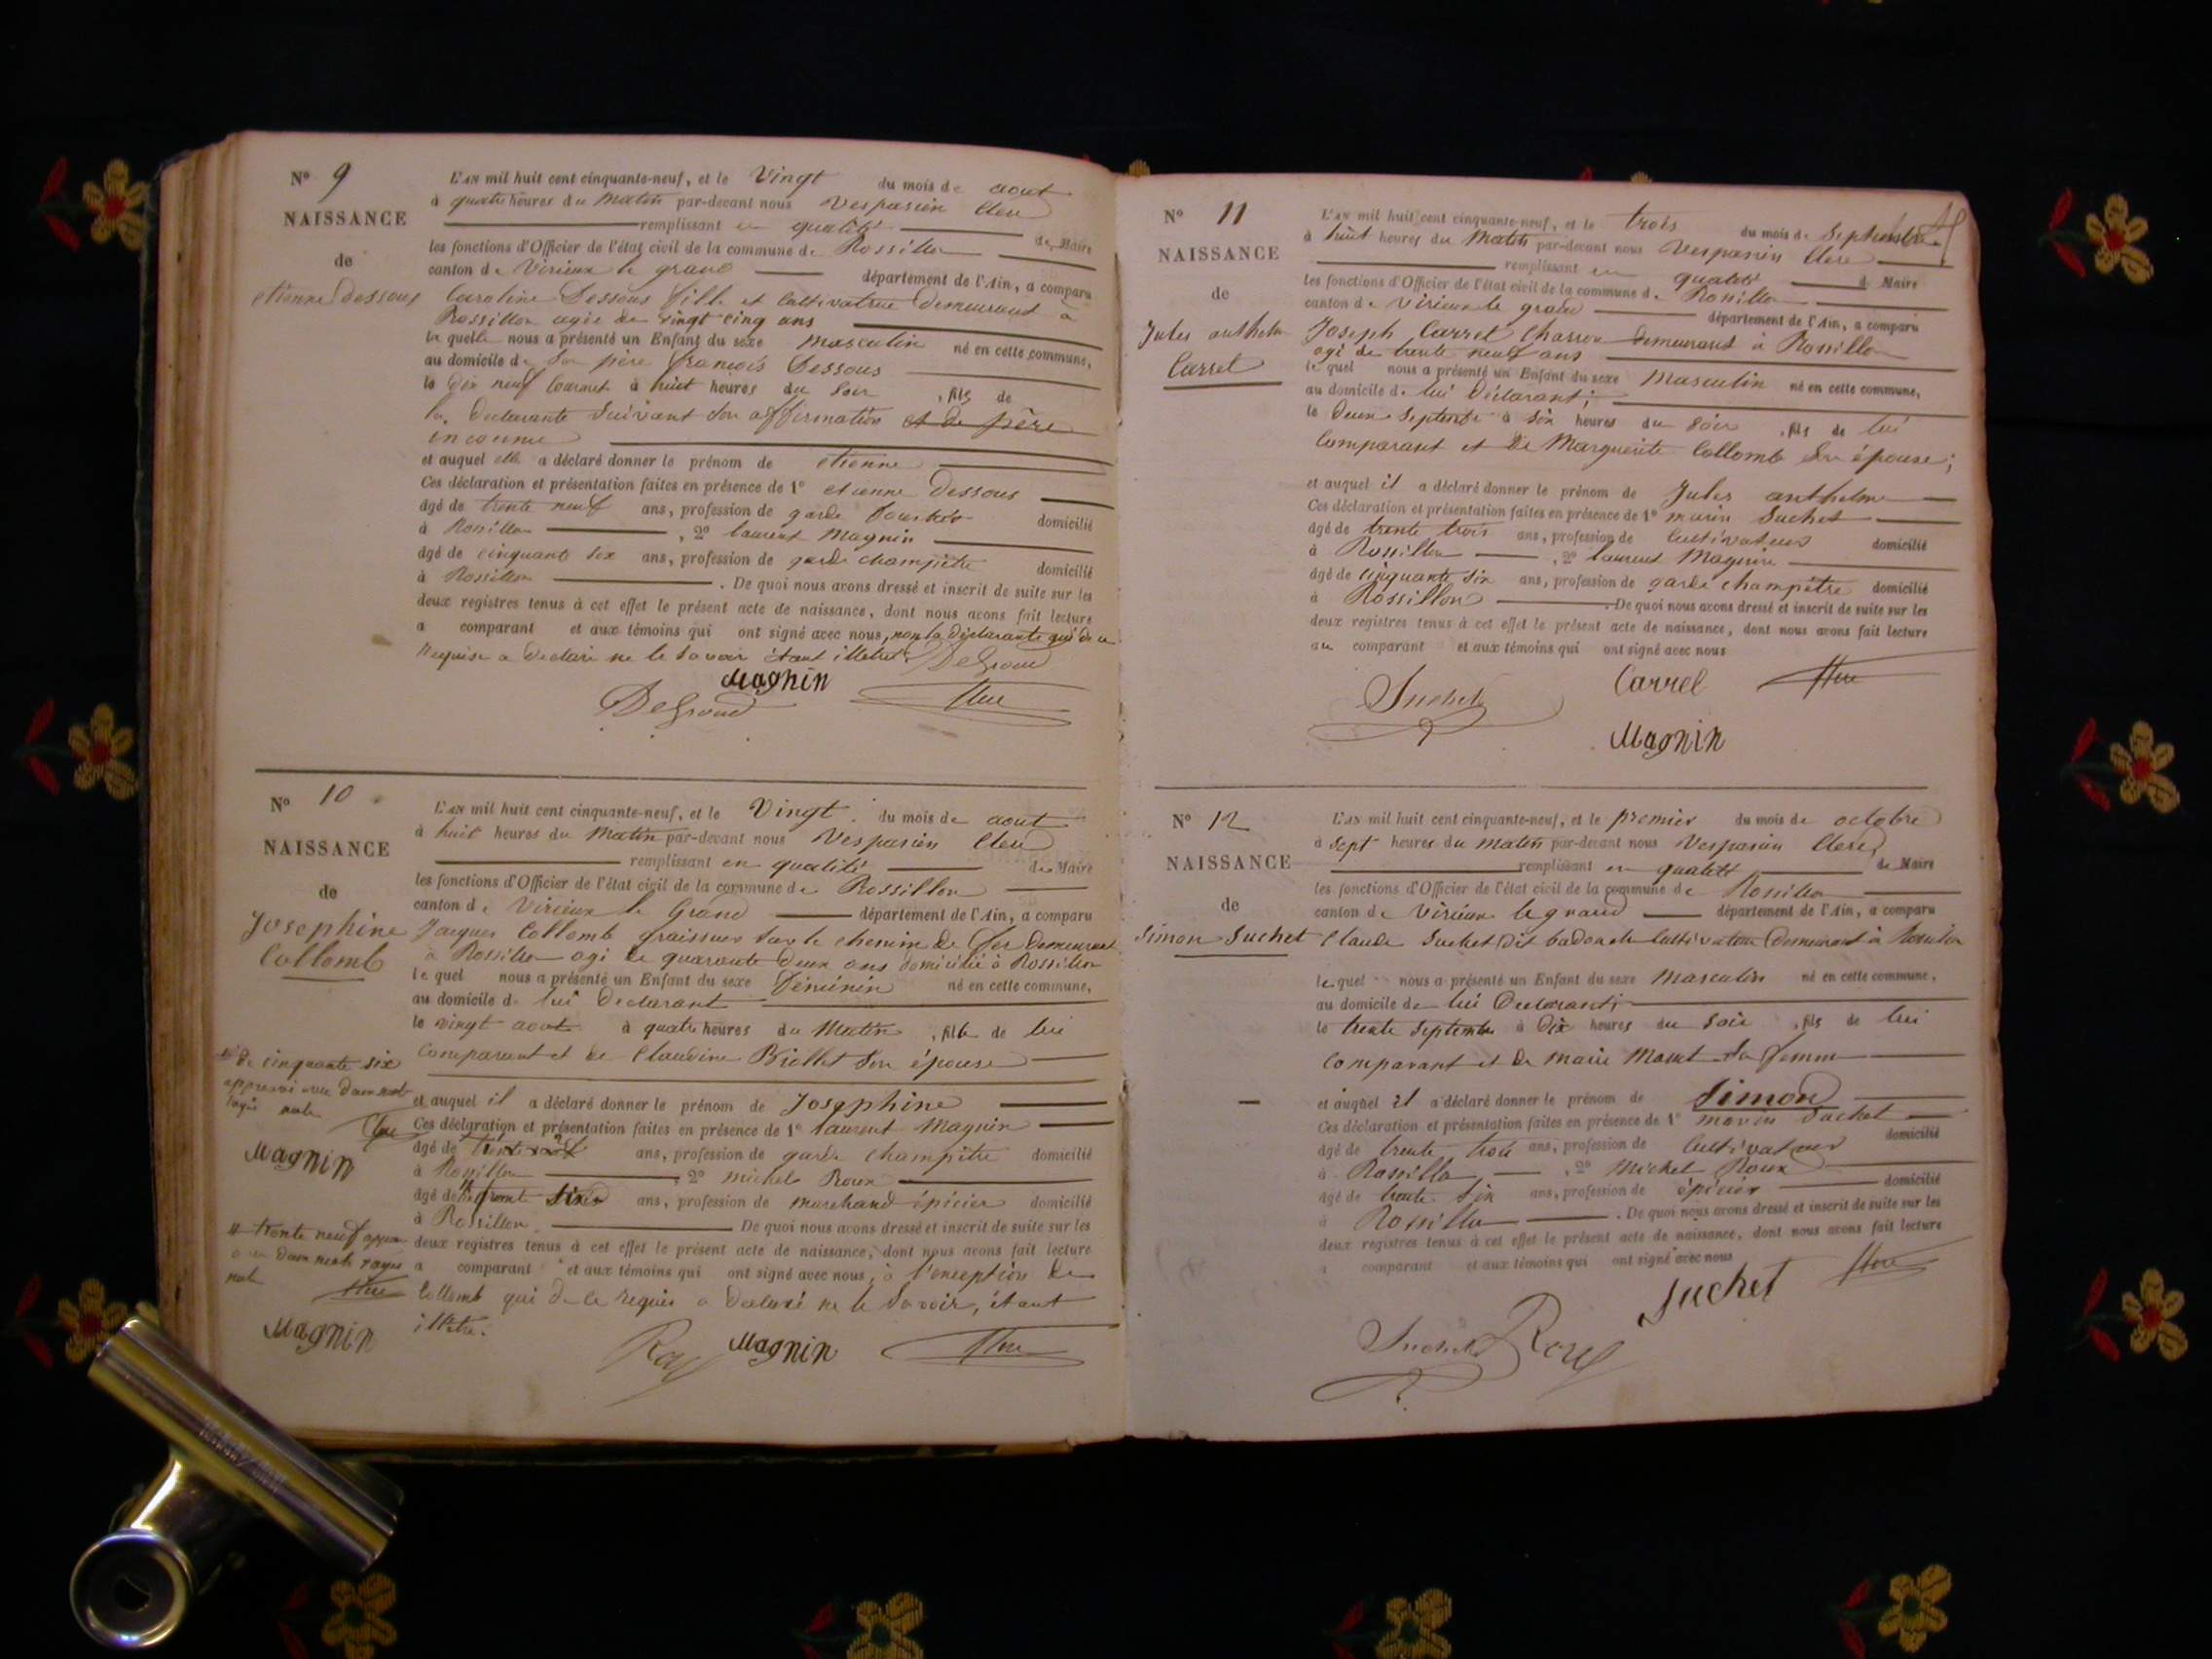 N° 9
NAISSANCE
de
etienne Dessous
L'AN mil huit cent cinquante-neuf, et le Vingt du mois de aout
à quatre heures du Matin par-devant nous Vespasien Clerc
remplissant en qualité de Maire
les fonctions d'Officier de l'état civil de la commune de Rossillon
canton de Virieux le grand département de l'Ain, a comparu
Caroline Dessous fille et Cultivatrice demeurant a
Rossillon agée de vingt cinq ans
la quelle nous a présenté un Enfant du sexe Masculin né en cette commune,
au domicile de son père françois Dessous
le dix neuf courant à huit heures du Soir , fils de
la Declarante Suivant son affirmation et de père
inconnu
et auquel elle a déclaré donner le prénom de etienne
Ces déclaration et présentation faites en présence de 1° etienne Dessous
âgé de trente neuf ans, profession de garde domicilié
à Rossillon , 2° laurent Magnin
âgé de cinquante six ans, profession de garde champêtre domicilié
à Rossillon . De quoi nous avons dressé et inscrit de suite sur les
deux registres tenus à cet effet le présent acte de naissance, dont nous avons fait lecture
a comparant et aux témoins qui ont signé avec nous, non la déclarante qui de ce
Requise a Declaré ne le Savoir étant illetré.
Magnin
N° 10
NAISSANCE
de
Josephine
Collomb
L'AN mil huit cent cinquante-neuf, et le Vingt du mois de aout
à huit heures du Matin par-devant nous Vespasien Clerc
remplissant en qualité de Maire
les fonctions d'Officier de l'état civil de la commune de Rossillon
canton de Virieux le Grand département de l'Ain, a comparu
Jacques Collomb graisseur sur le chemin de fer Demeurant
à Rossillon agé de quarante deux ans domicilié à Rossillon
le quel nous a présenté un Enfant du sexe Féminin né en cette commune,
au domicile de lui Declarant
le vingt aout à quatre heures du Matin , fille de lui
Comparant et de Claudine Briollet Son épouse
et auquel il a déclaré donner le prénom de Josephine
Ces déclaration et présentation faites en présence de 1° laurent Magnin
âgé de trente neuf ans, profession de garde champêtre domicilié
à Rossillon , 2° michel Roux
âgé de six ans, profession de marchand épicier domicilié
à Rossillon De quoi nous avons dressé et inscrit de suite sur les
deux registres tenus à cet effet le présent acte de naissance, dont nous avons fait lecture
a comparant et aux témoins qui ont signé avec nous, à l'exception de
Collomb qui de ce requis a Declaré ne le Savoir, étant
illétré.
de cinquante six
Magnin
trente neuf
Magnin
Magnin
N° 11
NAISSANCE
de
Jules anthelme
Carrel
L'AN mil huit cent cinquante-neuf, et le trois du mois de Septembre
à huit heures du Matin par-devant nous Vespasien Clerc
remplissant en qualité de Maire
les fonctions d'Officier de l'état civil de la commune de Rossillon
canton de Virieux le grand département de l'Ain, a comparu
Joseph Carrel Charron demeurant à Rossillon
agé de trente neuf ans
le quel nous a présenté un Enfant du sexe Masculin né en cette commune,
au domicile de lui Déclarant;
le deux Septembre à Six heures du Soir , fils de lui
Comparant et de Marguerite Collomb Son épouse;
et auquel il a déclaré donner le prénom de Jules anthelme
Ces déclaration et présentation faites en présence de 1° marin Suchet
âgé de trente trois ans, profession de Cultivateur domicilié
à Rossillon , 2° laurent Magnin
âgé de cinquante six ans, profession de garde champêtre domicilié
à Rossillon . De quoi nous avons dressé et inscrit de suite sur les
deux registres tenus à cet effet le présent acte de naissance, dont nous avons fait lecture
au comparant et aux témoins qui ont signé avec nous
Suchet Carrel
Magnin
N° 12
NAISSANCE
de
Simon Suchet
L'AN mil huit cent cinquante-neuf, et le premier du mois de octobre
à sept heures du matin par-devant nous Vespasien Clerc
remplissant en qualité de Maire
les fonctions d'Officier de l'état civil de la commune de Rossillon
canton de Virieux le grand département de l'Ain, a comparu
Claude Suchet Dit Cultivateur Demeurant à Rossillon
le quel nous a présenté un Enfant du sexe Masculin né en cette commune,
au domicile de lui Declarant;
le trente Septembre à Dix heures du Soir , fils de lui
Comparant et de marie Sa femme
et auquel il a déclaré donner le prénom de Simon
Ces déclaration et présentation faites en présence de 1° marin Suchet
âgé de trente trois ans, profession de Cultivateur domicilié
à Rossillon , 2° Michel Roux
âgé de trente Six ans, profession de épicier domicilié
à Rossillon . De quoi nous avons dressé et inscrit de suite sur les
deux registres tenus à cet effet le présent acte de naissance, dont nous avons fait lecture
a comparant et aux témoins qui ont signé avec nous
Suchet
Suchet Roux